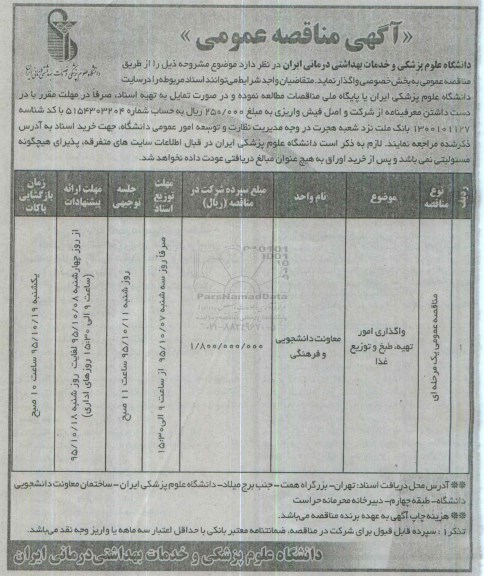 «آگهی مناقصه عمومی»
دانشگاه علوم پزشکی و خدمات بهداشتی درمانی ایران در نظر دارد موضوع مشروحه ذیل را از طریق
مناقصه عمومی به بخش خصوصی واگذار نماید. متقاضیان واجد شرایط می‌توانند اسناد مربوطه را در سایت
دانشگاه علوم پزشکی ایران یا پایگاه ملی مناقصات مطالعه نموده و در صورت تمایل به تهیه اسناد، صرفاً در مهلت مقرر با در
دست داشتن معرفینامه از شرکت و اصل فیش واریزی به مبلغ ۲۵۰/۰۰۰ ریال به حساب شماره ۵۱۵۴۳۰۳۲۰۴ با کد شناسه
۱۳۰۰۱۰۱۱۲۷ بانک ملت نزد شعبه هجرت در وجه مدیریت نظارت و توسعه امور عمومی دانشگاه، جهت خرید اسناد به آدرس
ذکر شده مراجعه نمایند. لازم به ذکر است دانشگاه علوم پزشکی ایران در قبال اطلاعات سایت های متفرقه، پذیرای هیچگونه
مسئولیتی نمی باشد و پس از خرید اوراق به هیچ عنوان مبالغ دریافتی عودت داده نخواهد شد.
ردیف
نوع مناقصه
موضوع
نام واحد
مبلغ سپرده شرکت در مناقصه (ریال)
مهلت توزیع اسناد
جلسه توجیهی
مهلت ارائه پیشنهادات
زمان بازگشایی پاکات
۱
مناقصه عمومی یک مرحله ای
واگذاری امور تهیه، طبخ و توزیع غذا
معاونت دانشجویی و فرهنگی
۱/۸۰۰/۰۰۰/۰۰۰
صرفاً روز سه شنبه ۹۵/۱۰/۰۷ از ساعت ۹ الی ۱۵:۳۰
روز شنبه ۹۵/۱۰/۱۱ ساعت ۱۱ صبح
از روز چهارشنبه ۹۵/۱۰/۰۸ لغایت روز شنبه ۹۵/۱۰/۱۸
(ساعت ۹ الی ۱۵:۳۰ روزهای اداری)
یکشنبه ۹۵/۱۰/۱۹ ساعت ۱۰ صبح
ParsNamadData
** آدرس محل دریافت اسناد: تهران- بزرگراه همت - جنب برج میلاد- دانشگاه علوم پزشکی ایران - ساختمان معاونت دانشجویی
دانشگاه- طبقه چهارم- دبیرخانه محرمانه حراست
** هزینه چاپ آگهی به عهده برنده مناقصه می‌باشد.
تذکر۱: سپرده قابل قبول برای شرکت در مناقصه، ضمانتنامه معتبر بانکی با حداقل اعتبار سه ماهه یا واریز وجه نقد می‌باشد.
دانشگاه علوم پزشکی و خدمات بهداشتی درمانی ایران